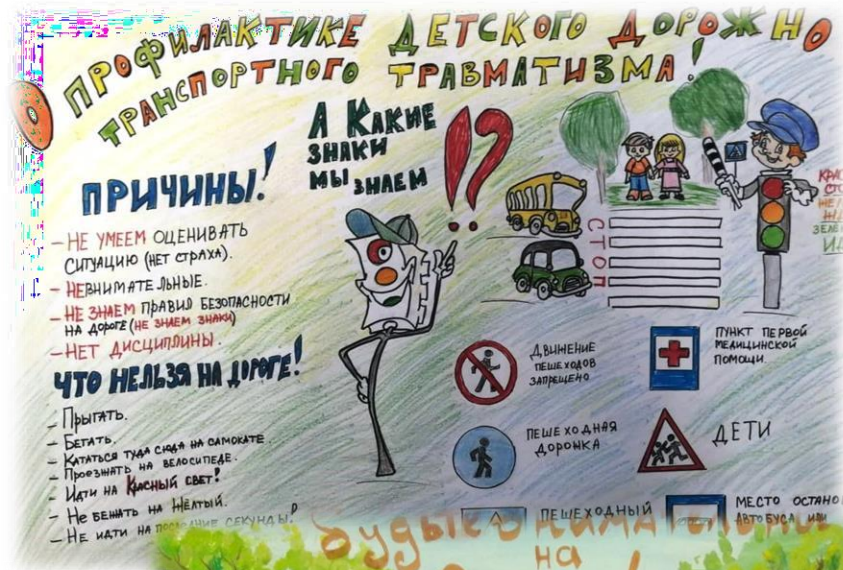 О ПРОФИЛАКТИКЕ ДЕТСКОГО ДОРОЖНО
ТРАНСПОРТНОГО ТРАВМАТИЗМА!
А КАКИЕ
ЗНАКИ
МЫ ЗНАЕМ
!?
ПРИЧИНЫ!
- НЕ УМЕЕМ ОЦЕНИВАТЬ
СИТУАЦИЮ (НЕТ СТРАХА).
- НЕВНИМАТЕЛЬНЫЕ.
- НЕ ЗНАЕМ ПРАВИЛ БЕЗОПАСНОСТИ
НА ДОРОГЕ (НЕ ЗНАЕМ ЗНАКИ)
- НЕТ ДИСЦИПЛИНЫ.
ЧТО НЕЛЬЗЯ НА ДОРОГЕ!
- ПРЫГАТЬ.
- БЕГАТЬ.
- КАТАТЬСЯ ТУДА СЮДА НА САМОКАТЕ.
- ПРОЕЗЖАТЬ НА ВЕЛОСИПЕДЕ.
- ИДТИ НА КРАСНЫЙ СВЕТ!
- НЕ БЕЖАТЬ НА ЖЁЛТЫЙ.
- НЕ ИДТИ НА ПОСЛЕДНИЕ СЕКУНДЫ!
СТОП
ДВИЖЕНИЕ
ПЕШЕХОДОВ
ЗАПРЕЩЕНО
ПУНКТ ПЕРВОЙ
МЕДИЦИНСКОЙ
ПОМОЩИ.
ПЕШЕХОДНАЯ
ДОРОЖКА
ДЕТИ
ПЕШЕХОДНЫЙ
МЕСТО
АВТОБУСА ИЛИ
Будьте внимательны
на